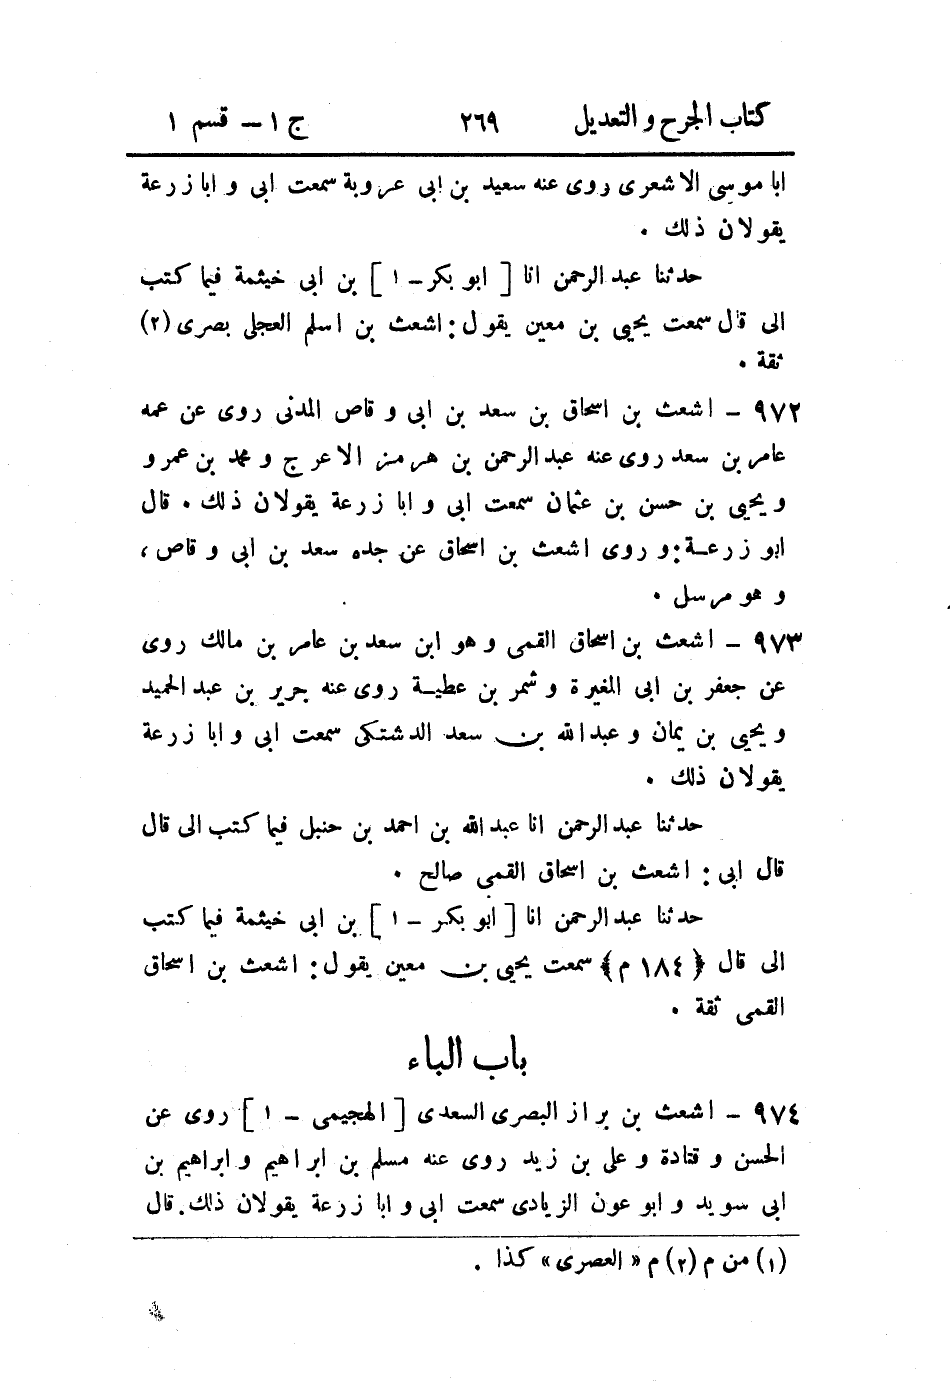 كتاب الجرح والتعديل ٢٦٩ ج ١ – قسم ١
ابا موسى الاشعرى روى عنه سعيد بن ابى عروبة سمعت ابى وابا زرعة
يقولان ذلك .
حدثنا عبد الرحمن انا [ ابو بكر – ١ ] بن ابى خيثمة فيما كتب
الى قال سمعت يحيى بن معين يقول : اشعث بن اسلم العجلى بصرى (٢)
ثقة .
٩٧٢ – اشعث بن اسحاق بن سعد بن ابى وقاص المدنى روى عن عمه
عامر بن سعد روى عنه عبد الرحمن بن هرمز الاعرج و محمد بن عمرو
و يحيى بن حسن بن عثمان سمعت ابى وابا زرعة يقولان ذلك . قال
ابو زرعة : و روى اشعث بن اسحاق عن جده سعد بن ابى وقاص ،
و هو مرسل .
٩٧٣ – اشعث بن اسحاق القمى و هو ابن سعد بن عامر بن مالك روى
عن جعفر بن ابى المغيرة و شمر بن عطية روى عنه جرير بن عبد الحميد
و يحيى بن يمان و عبد الله بن سعد الدشتكى سمعت ابى وابا زرعة
يقولان ذلك .
حدثنا عبد الرحمن انا عبد الله بن احمد بن حنبل فيما كتب الى قال
قال ابى : اشعث بن اسحاق القمى صالح .
حدثنا عبد الرحمن انا [ ابو بكر – ١ ] بن ابى خيثمة فيما كتب
الى قال ﴿ ١٨٤ م ﴾ سمعت يحيى بن معين يقول : اشعث بن اسحاق
القمى ثقة .
باب الباء
٩٧٤ – اشعث بن براز البصرى السعدى [ الهجيمى – ١ ] روى عن
الحسن و قتادة و على بن زيد روى عنه مسلم بن ابراهيم و ابراهيم بن
ابى سويد و ابو عون الزيادى سمعت ابى وابا زرعة يقولان ذلك . قال
(١) من م (٢) م « العصرى » كذا .